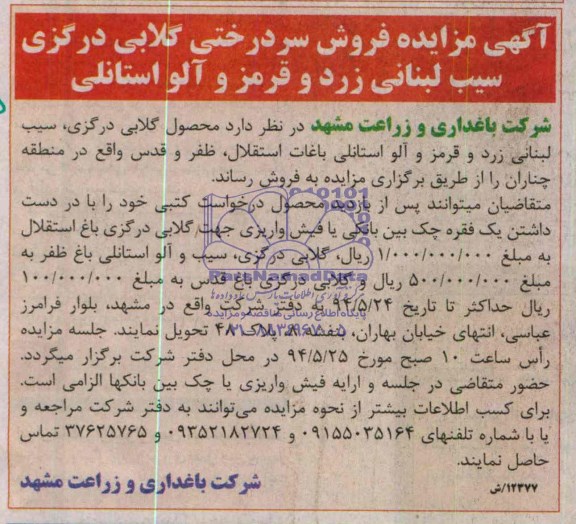 آگهی مزایده فروش سردرختی گلابی درگزی
سیب لبنانی زرد و قرمز و آلو استانلی
شرکت باغداری و زراعت مشهد در نظر دارد محصول گلابی درگزی، سیب
لبنانی زرد و قرمز و آلو استانلی باغات استقلال، ظفر و قدس واقع در منطقه
چناران را از طریق برگزاری مزایده به فروش رساند.
متقاضیان میتوانند پس از بازدید محصول درخواست کتبی خود را با در دست
داشتن یک فقره چک بین بانکی یا فیش واریزی جهت گلابی درگزی باغ استقلال
به مبلغ ۱/۰۰۰/۰۰۰/۰۰۰ ریال، گلابی درگزی، سیب و آلو استانلی باغ ظفر به
مبلغ ۵۰۰/۰۰۰/۰۰۰ ریال و گلابی درگزی باغ قدس به مبلغ ۱۰۰/۰۰۰/۰۰۰
ریال حداکثر تا تاریخ ۹۴/۵/۲۴ به دفتر شرکت واقع در مشهد، بلوار فرامرز
عباسی، انتهای خیابان بهاران، بنفشه ۸، پلاک ۴۸ تحویل نمایند. جلسه مزایده
رأس ساعت ۱۰ صبح مورخ ۹۴/۵/۲۵ در محل دفتر شرکت برگزار میگردد.
حضور متقاضی در جلسه و ارایه فیش واریزی یا چک بین بانکها الزامی است.
برای کسب اطلاعات بیشتر از نحوه مزایده می‌توانند به دفتر شرکت مراجعه و
یا با شماره تلفنهای ۰۹۱۵۵۰۳۵۱۶۴ و ۰۹۳۵۲۱۸۲۷۲۴ و ۳۷۶۲۵۷۶۵ تماس
حاصل نمایند.
شرکت باغداری و زراعت مشهد
۱۲۳۷۷/ش
ParsNamadData
پایگاه اطلاع رسانی مناقصه و مزایده